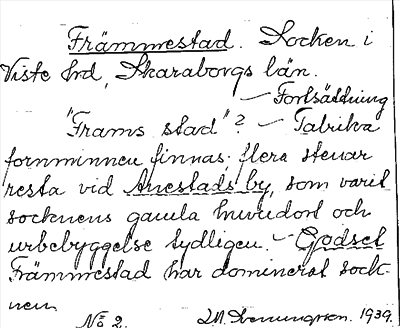 Främmestad. Socken i
Viste hrd, Skaraborgs län.
— Fortsättning
"Frams stad"? — Talrika
fornminnen finnas; flera stenar
resta vid Anestads by, som varit
socknens gamla huvudort och
urbebyggelse tydligen. — Godset
Främmestad har dominerat sock-
nen
No 2. 1939.